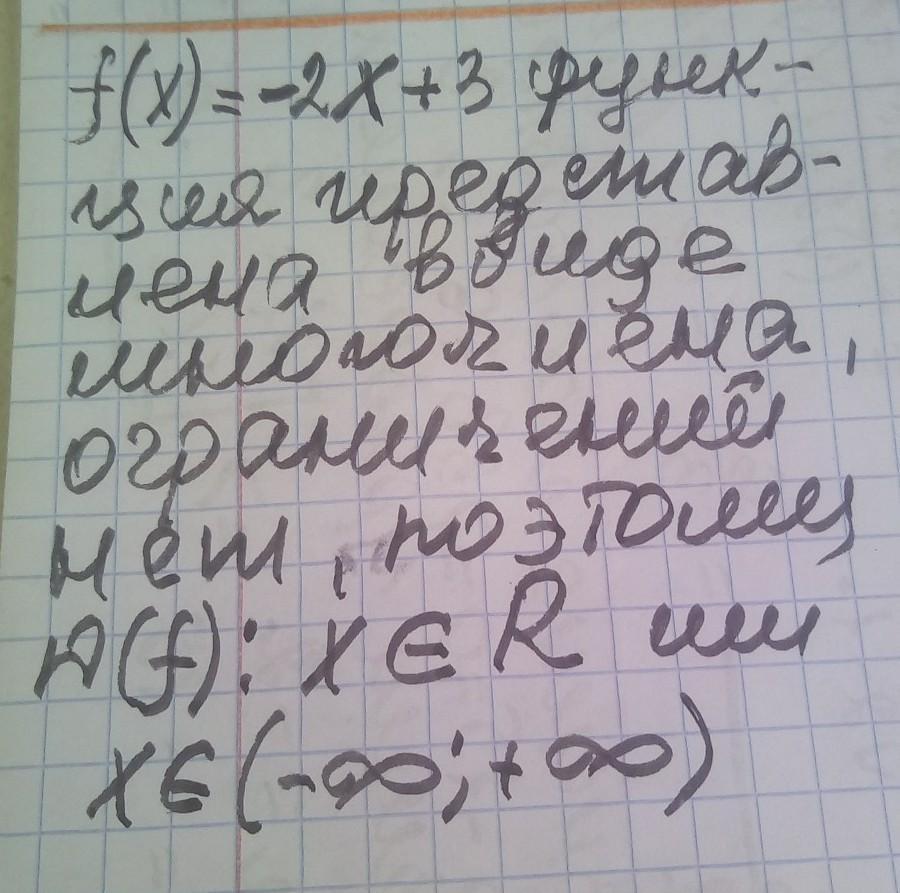 f(x)=-2x+3 функ-
ция представ-
лена в виде
многочлена,
ограничений
нет, поэтому
D(f): x∈R или
x∈(-∞;+∞)